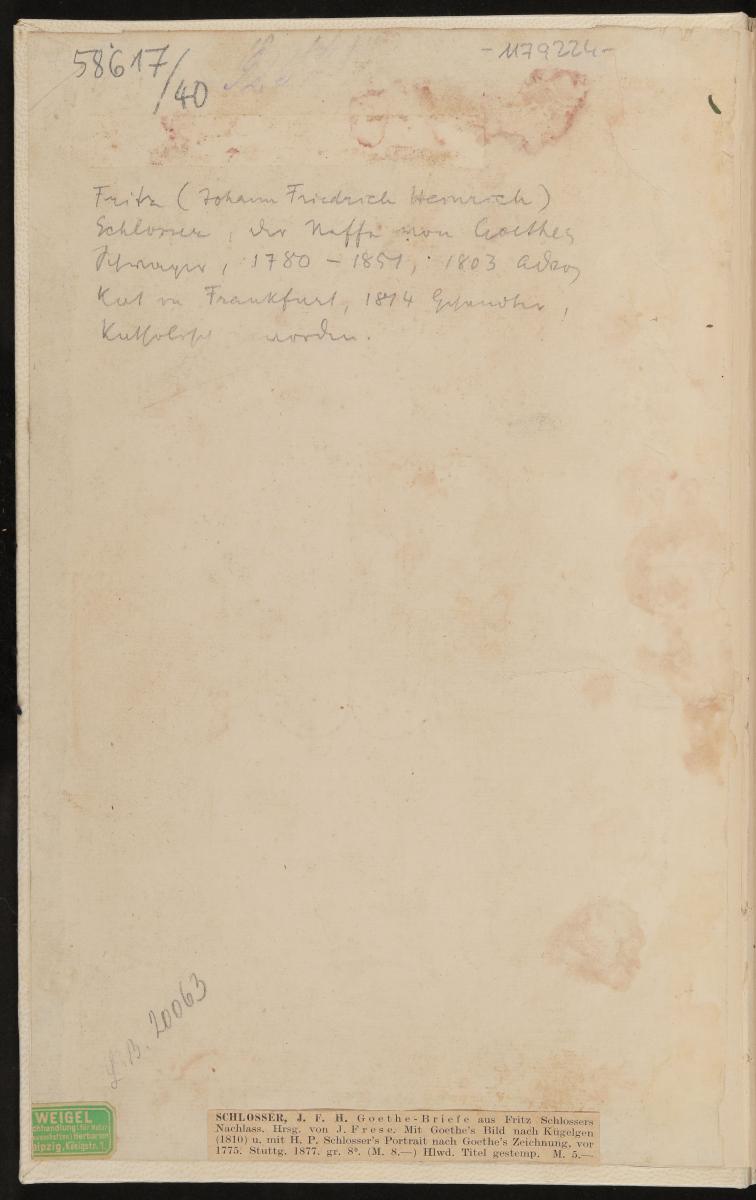 58617/40
- 1179224 -
Fritz (Johann Friedrich Heinrich)
Schlosser, der Neffe von Goethes
Schwager, 1780 – 1851, 1803 Advo-
kat in Frankfurt, 1814 Gesandter,
Katholisch worden.
L. B. 20063
WEIGEL
Herbarien
Leipzig, Königstr. 1.
SCHLOSSER, J. F. H. Goethe-Briefe aus Fritz Schlossers
Nachlass. Hrsg. von J. Frese. Mit Goethe's Bild nach Kügelgen
(1810) u. mit H. P. Schlosser's Portrait nach Goethe's Zeichnung, vor
1775. Stuttg. 1877. gr. 8°. (M. 8.—) Hlwd. Titel gestemp. M. 5.—